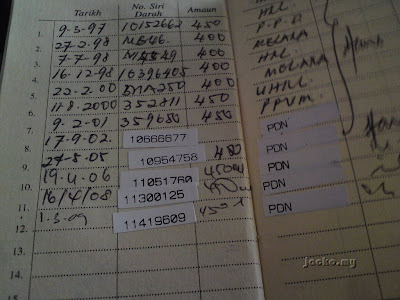 Tarikh No. Siri Darah Amaun
1. 9-3-97 10152662 450 HKL
2. 27-2-98 400 P.P.D.
3. 7-7-98 400 MELAKA
4. 16-12-98 16396405 400 HKL
5. 22-2-00 BAA250 400 MELAKA
6. 11-8-2000 352811 450 UHKL
7. 9-2-01 359680 450 PPUM
8. 17-9-02 10666677 PDN
9. 27-8-05 10954758 450 PDN
10. 19-4-06 11051760 450ml PDN
11. 16/4/08 11300125 PDN
12. 1-3-09 11419609 450 PDN
13.
14.
15.
jocko.my